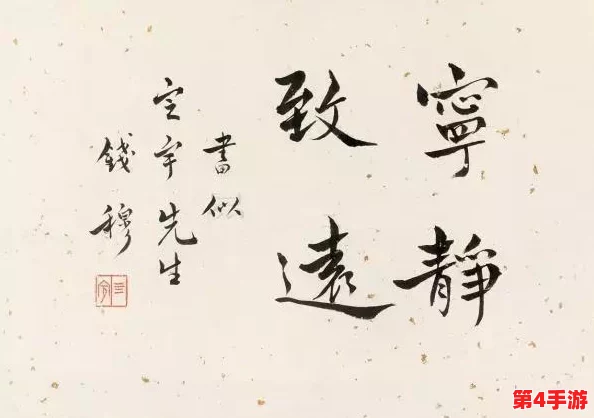 寧靜
致遠
書似
定宇先生
錢穆
第4手游